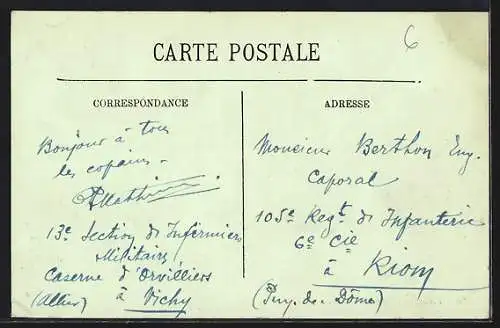 6
CARTE POSTALE
CORRESPONDANCE
Bonjour à tous
les copains -
13e Section de Infirmiers
Militaires
Caserne d'Orvilliers
(Allier) à Vichy
ADRESSE
Monsieur Berthon Eug.
Caporal
105e Regt. de Infanterie
6e Cie
à Riom
(Puy. de. Dôme)